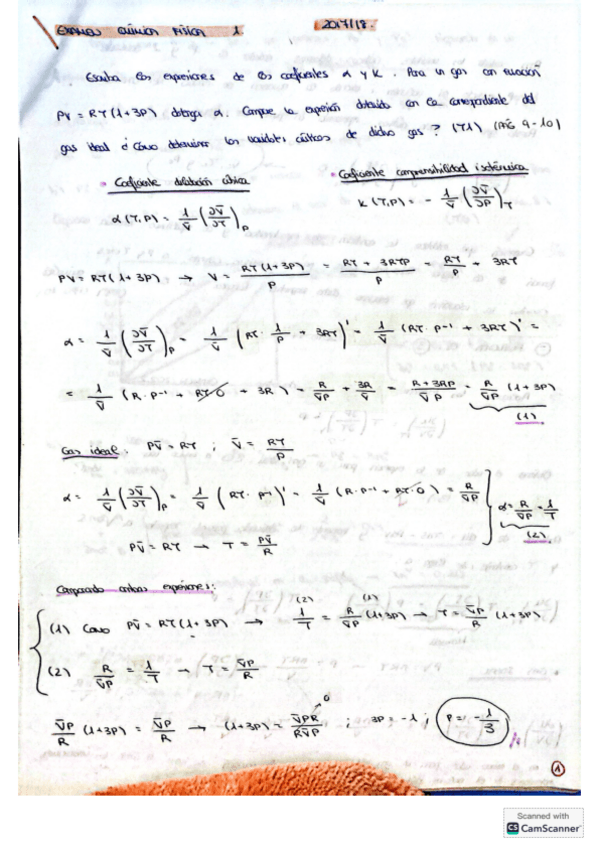 EXAMEN QUÍMICA FÍSICA 1. 2017/18.
Escriba las expresiones de los coeficientes α y K. Para un gas con ecuación
PV = RT(1+3P) obtenga α. Compare la expresión obtenida con la correspondiente del
gas ideal ¿Cómo determinar los variables críticos de dicho gas? (T1) (PÁG 9-10)
• Coeficiente dilatación cúbica
• Coeficiente compresibilidad isotérmica
α(T,P) = 1/V̄ (∂V̄/∂T)P
K(T,P) = - 1/V̄ (∂V̄/∂P)T
PV = RT(1+3P) → V = RT(1+3P)/P = RT + 3RTP/P = RT/P + 3RT
α = 1/V̄ (∂V̄/∂T)P = 1/V̄ (RT · 1/P + 3RT)' = 1/V̄ (RT · P⁻¹ + 3RT)' =
= 1/V̄ (R · P⁻¹ + RT·0 + 3R) = R/V̄P + 3R/V̄ = R+3RP/V̄P = R/V̄P (1+3P)
(1)
Gas ideal: PV̄ = RT ; V̄ = RT/P
α = 1/V̄ (∂V̄/∂T)P = 1/V̄ (RT · P⁻¹)' = 1/V̄ (R·P⁻¹ + RT·0) = R/V̄P
α = R/V̄P = 1/T
(2)
PV̄ = RT → T = PV̄/R
Comparando ambas expresiones:
(2) (1)
(1) Como PV̄ = RT(1+3P) → 1/T = R/V̄P (1+3P) → T = V̄P/R (1+3P)
(2) R/V̄P = 1/T → T = V̄P/R
V̄P/R (1+3P) = V̄P/R → (1+3P) = V̄PR/RV̄P 0 ; 3P = -1 ; P = -1/3
1
Scanned with
CS CamScanner